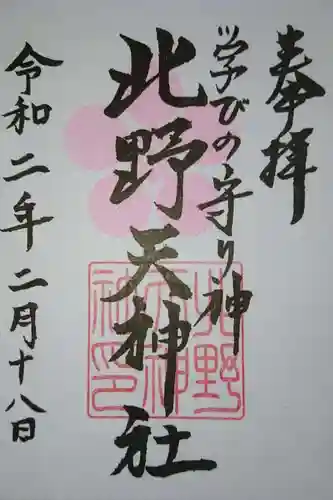 奉拝
学びの守り神
北野天神社
令和二年二月十八日
北野天神社印